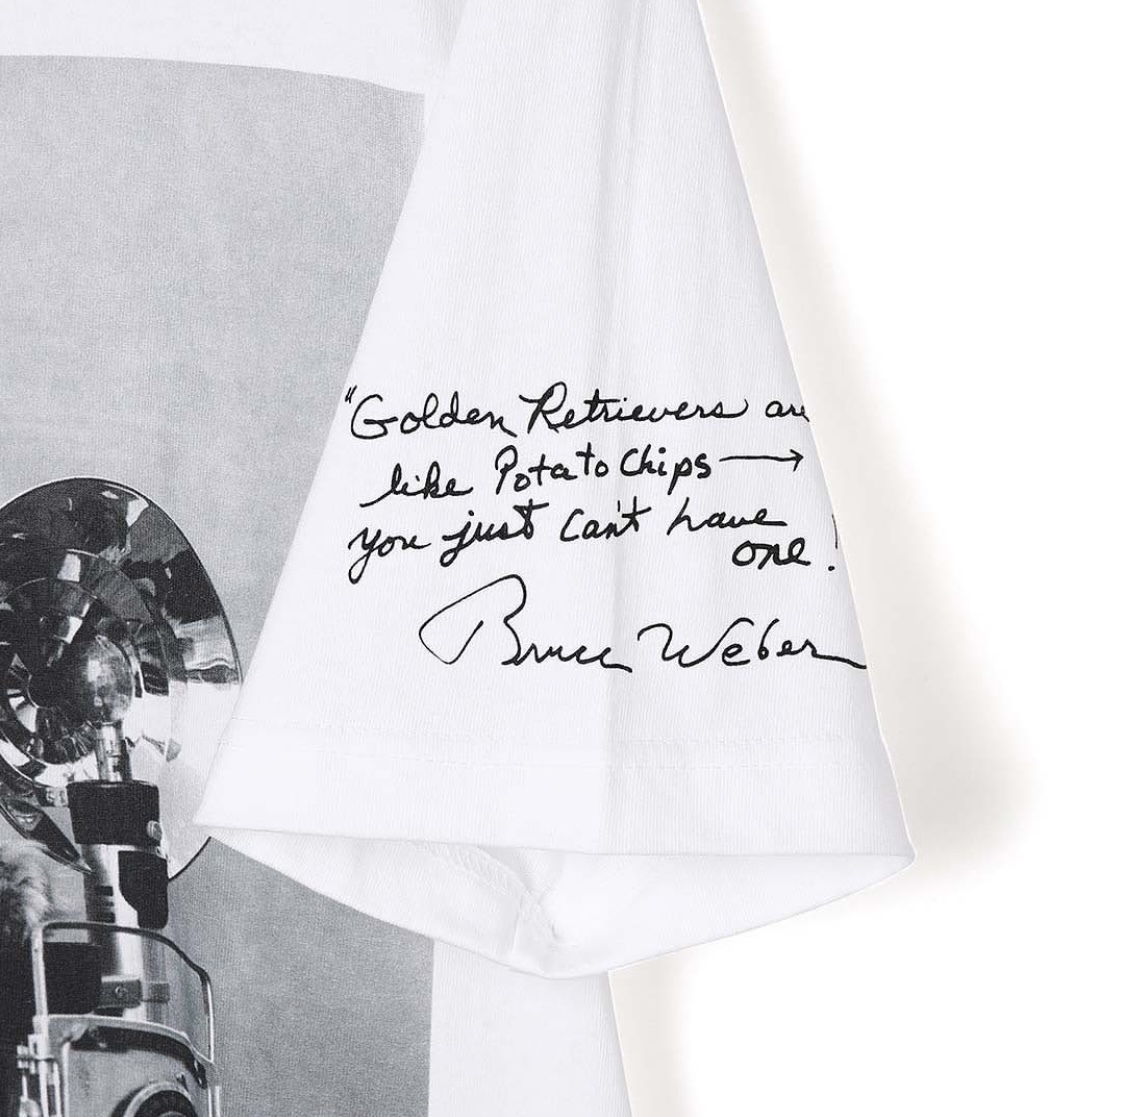 "Golden Retrievers are
like Potato Chips →
you just can't have
one!
Bruce Weber